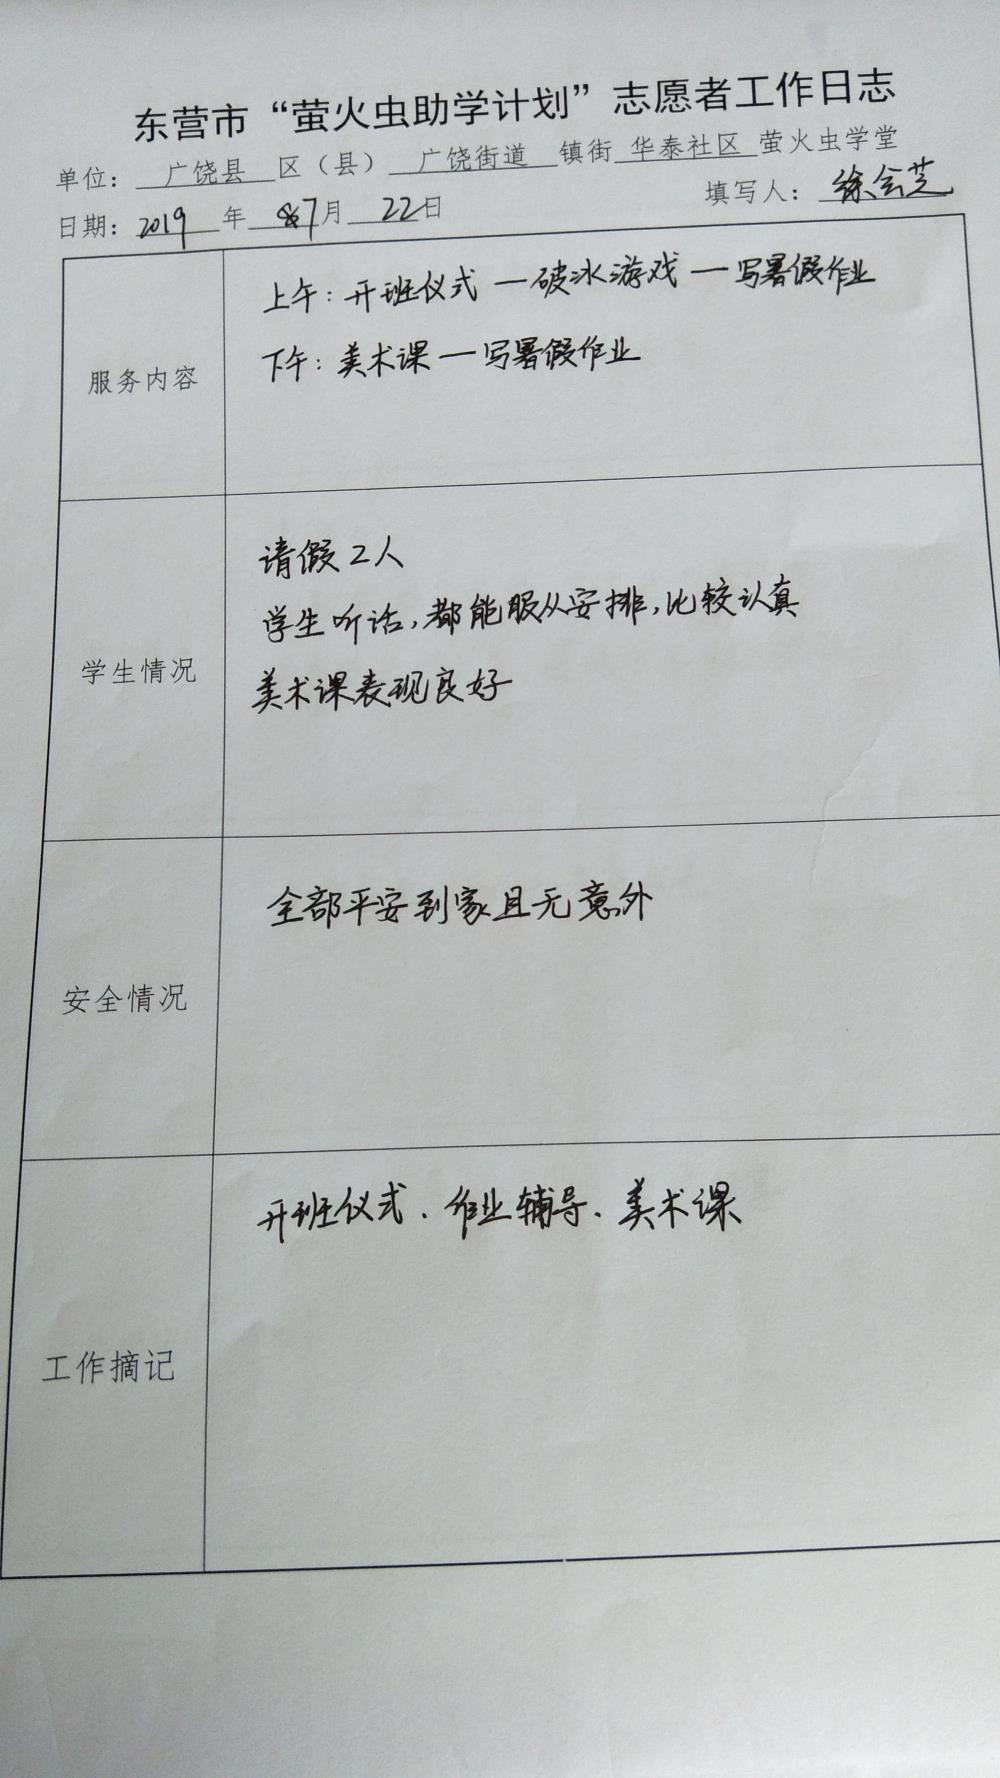 东营市“萤火虫助学计划”志愿者工作日志
单位：广饶县区（县）广饶街道镇街华泰社区萤火虫学堂
日期：2019年7月22日 填写人：徐会芝
服务内容
上午：开班仪式—破冰游戏—写暑假作业
下午：美术课—写暑假作业
学生情况
请假2人
学生听话，都能服从安排，比较认真
美术课表现良好
安全情况
全部平安到家且无意外
工作摘记
开班仪式、作业辅导、美术课